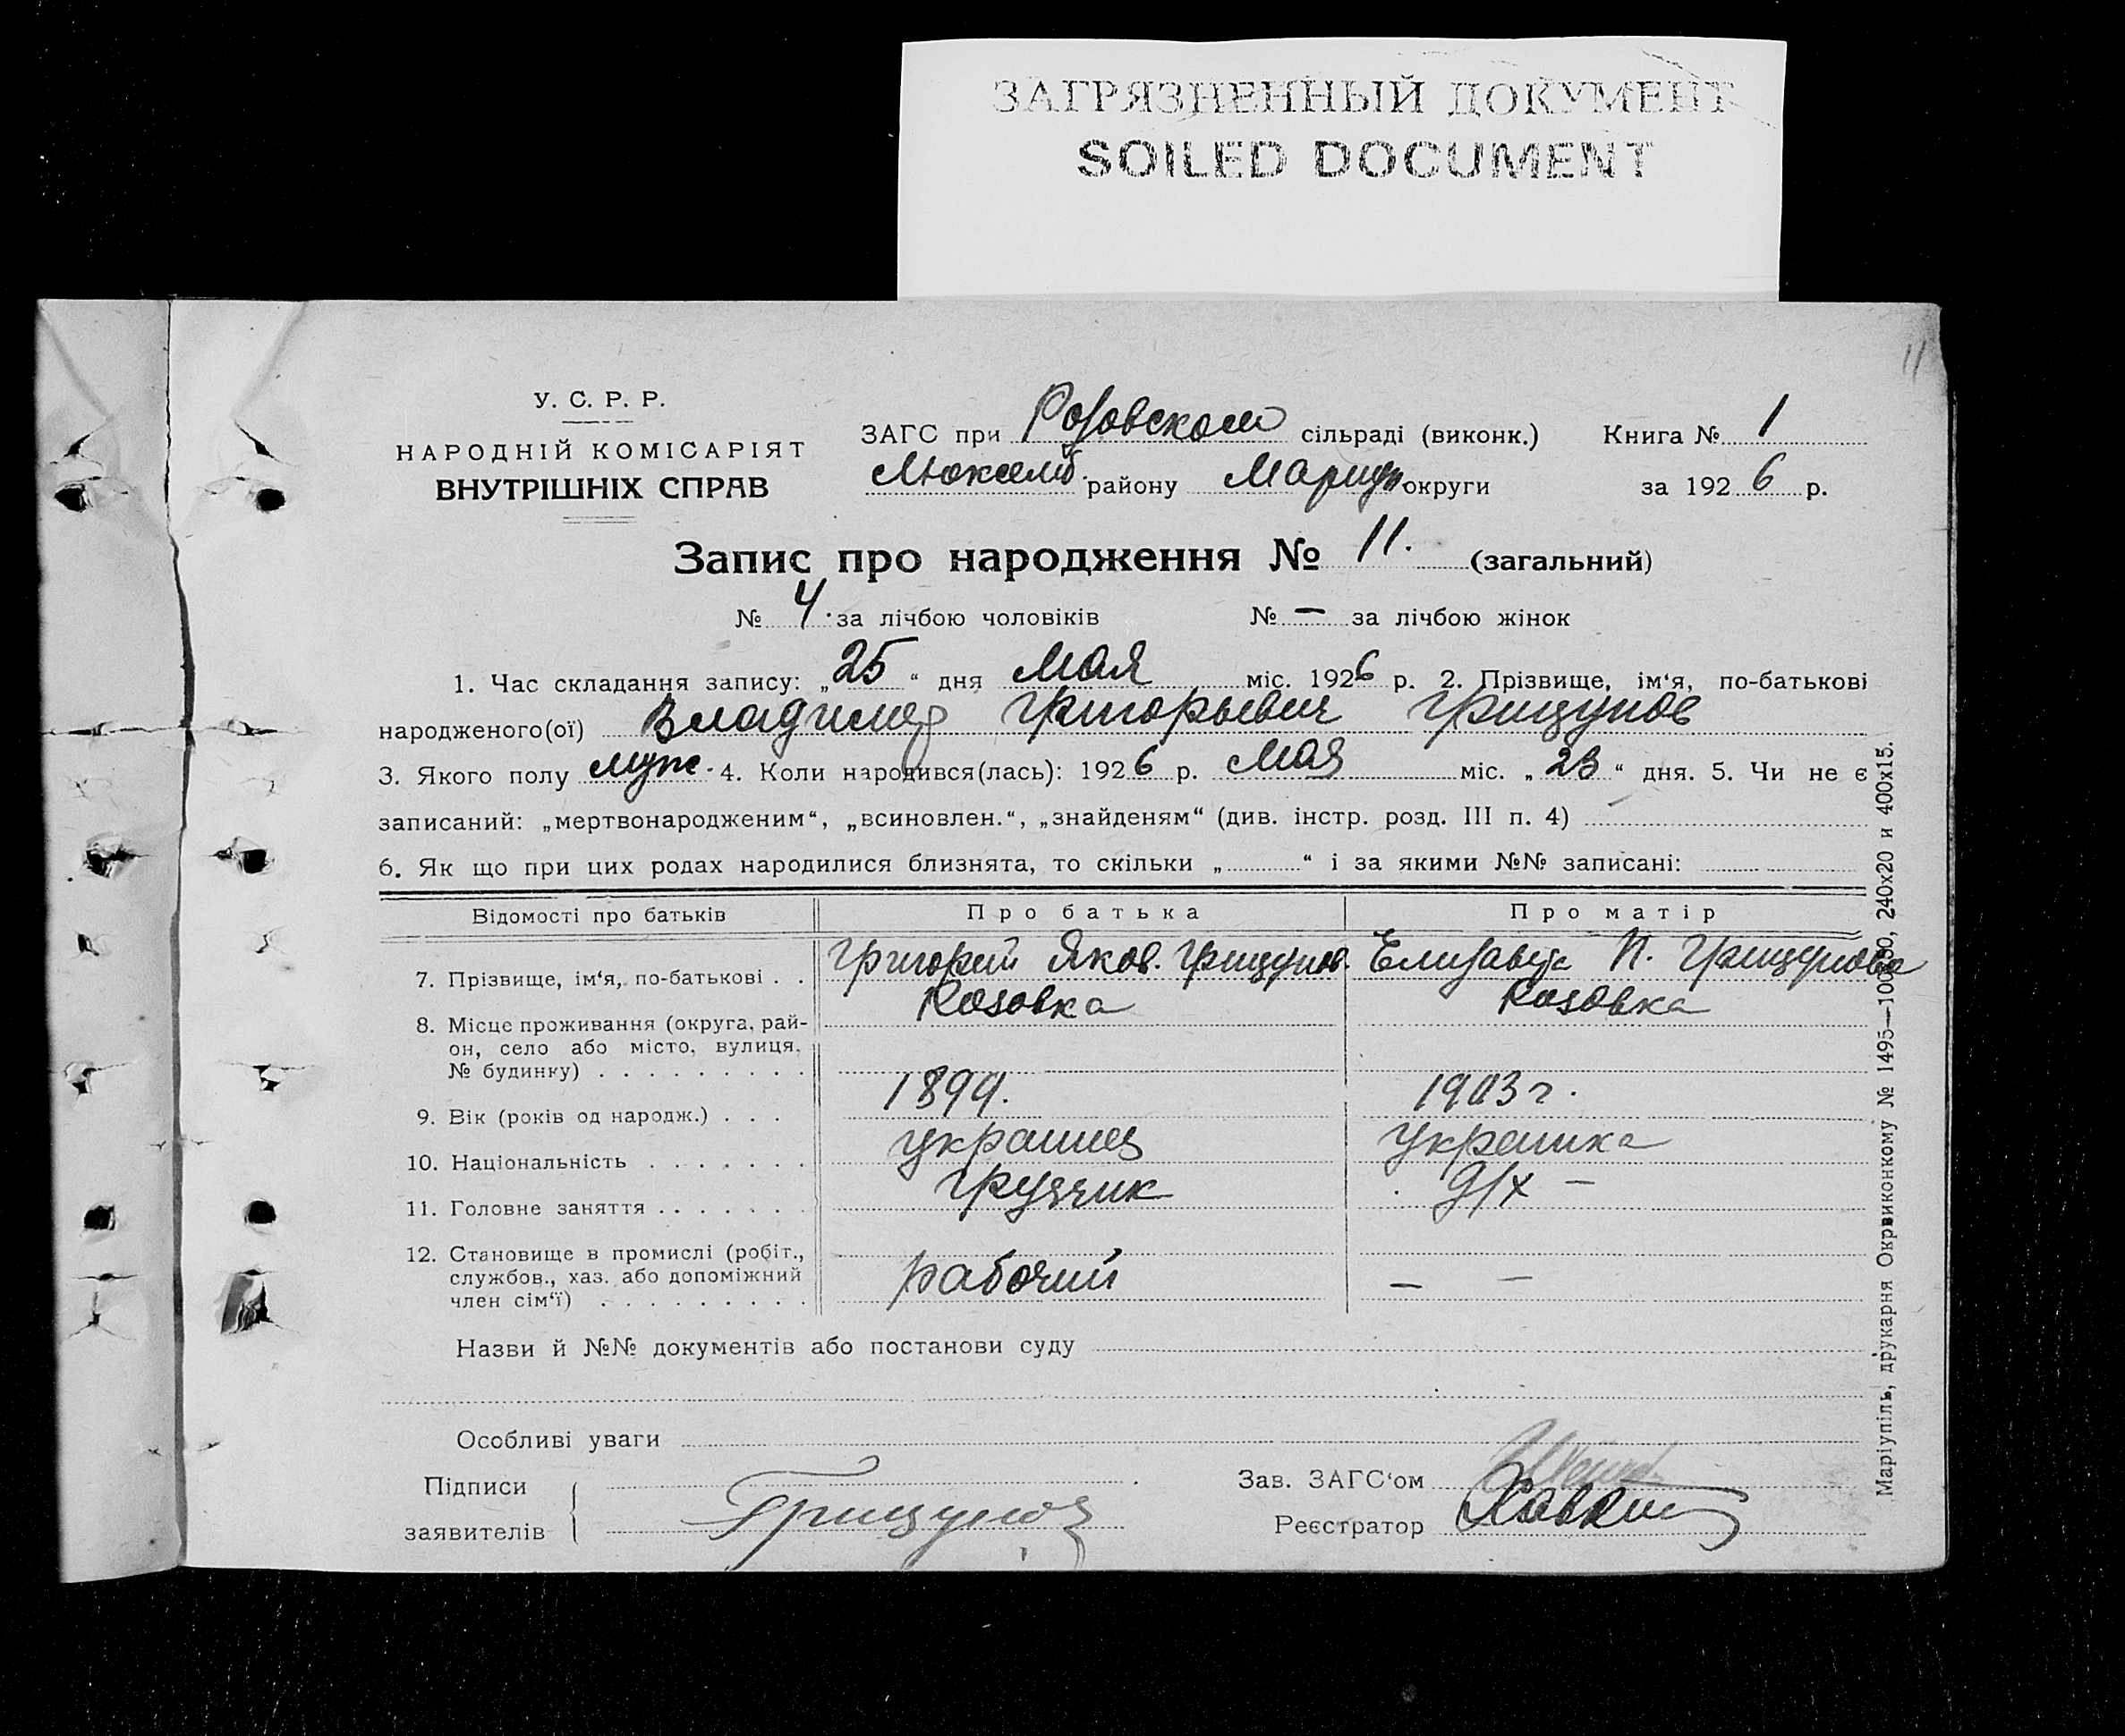 ЗАГРЯЗНЕННЫЙ ДОКУМЕНТ
SOILED DOCUMENT
11
У. С. Р. Р.
НАРОДНІЙ КОМІСАРІЯТ
ВНУТРІШНІХ СПРАВ
ЗАГС при Розовском сільраді (виконк.) Книга № 1
Люксемб. району Мариуп округи за 1926 р.
Запис про народження № 11. (загальний)
№ 4. за лічбою чоловіків № — за лічбою жінок
1. Час складання запису: „25“ дня мая міс. 1926 р. 2. Прізвище, ім‘я, по-батькові
народженого(ої) Владимир Григорьевич Грищунов
3. Якого полу муж. 4. Коли народився(лась): 1926 р. Мая міс. „23“ дня. 5. Чи не є
записаний: „мертвонародженим“, „всиновлен.“, „знайденям“ (див. інстр. розд. III п. 4)
6. Як що при цих родах народилися близнята, то скільки „ “ і за якими №№ записані:
Відомості про батьків Про батька Про матір
7. Прізвище, ім‘я, по-батькові . . Григорий Яков. Грищунов. Елизавета П. Грищунова
8. Місце проживання (округа, рай- Розовка Розовка
он, село або місто, вулиця,
№ будинку) . . . . . . . . .
9. Вік (років од народж.) . . . 1899. 1903 г.
10. Національність . . . . . . . украинец Украинка
11. Головне заняття . . . . . . . грузчик д/х —
12. Становище в промислі (робіт.,
службов., хаз. або допоміжний рабочий — —
член сім‘ї) . . . . . . . . .
Назви й №№ документів або постанови суду
Особливі уваги
Підписи
заявителів Грищунов
Зав. ЗАГС‘ом
Реєстратор
Маріупіль, друкарня Окрвиконкому № 1495—10000, 240х20 и 400х15.